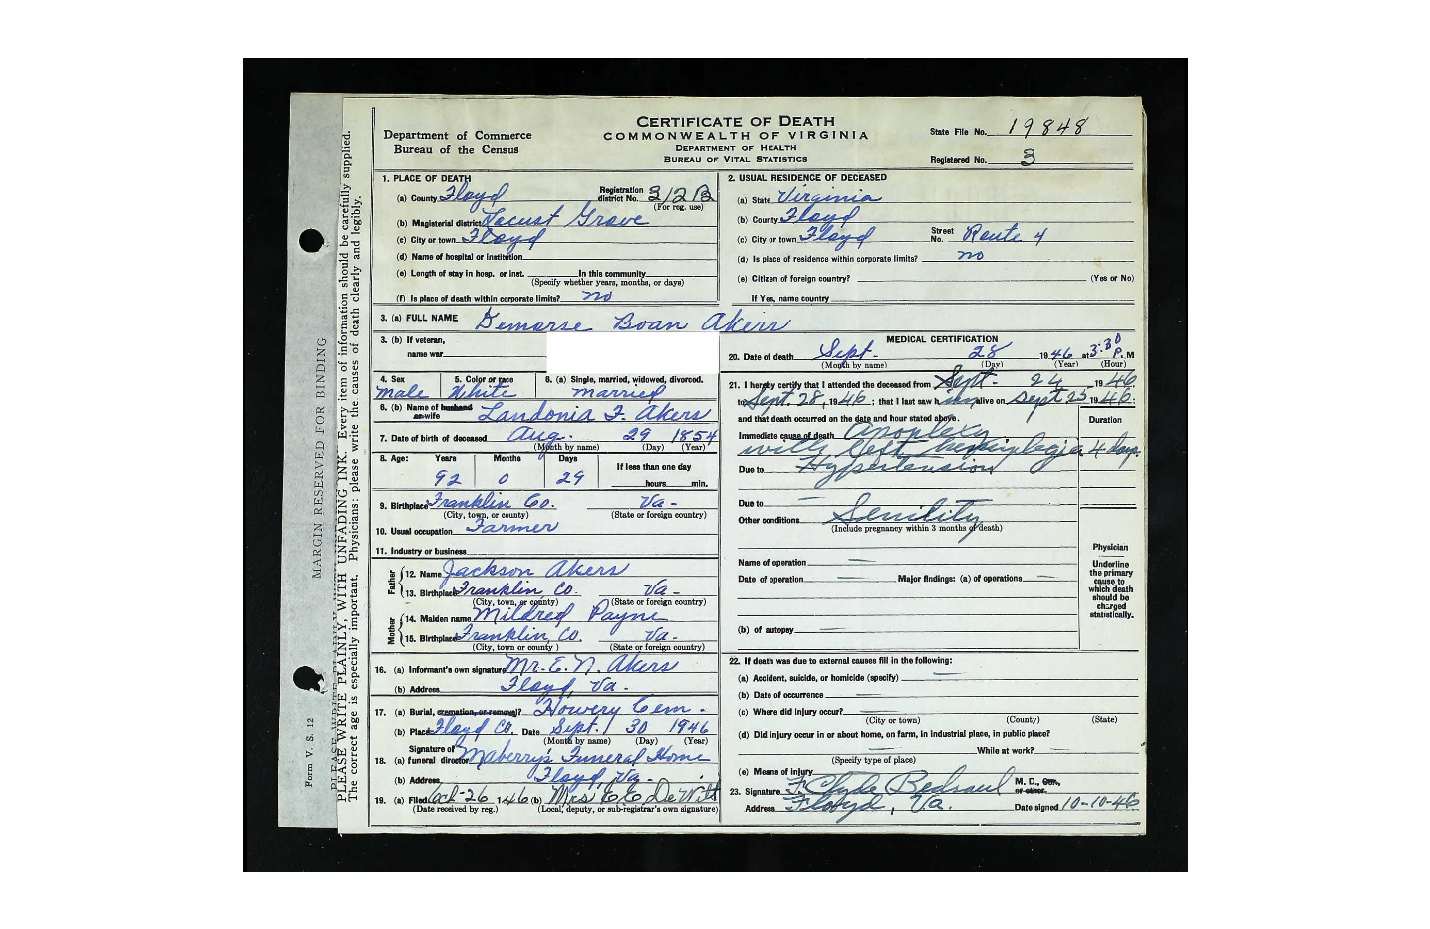 CERTIFICATE OF DEATH
COMMONWEALTH OF VIRGINIA
DEPARTMENT OF HEALTH
BUREAU OF VITAL STATISTICS
Department of Commerce
Bureau of the Census
State File No. 19848
Registered No. 3
MARGIN RESERVED FOR BINDING
Form V. S. 12
PLEASE WRITE PLAINLY, WITH UNFADING INK. Every item of information should be carefully supplied.
The correct age is especially important. Physicians: please write the causes of death clearly and legibly.
1. PLACE OF DEATH
(a) County Floyd Registration district No. 312B
(For reg. use)
(b) Magisterial district Locust Grove
(c) City or town Floyd
(d) Name of hospital or institution
(e) Length of stay in hosp. or inst. In this community
(Specify whether years, months, or days)
(f) Is place of death within corporate limits? no
2. USUAL RESIDENCE OF DECEASED
(a) State Virginia
(b) County Floyd
(c) City or town Floyd Street No. Route 4
(d) Is place of residence within corporate limits? no
(e) Citizen of foreign country? (Yes or No)
If Yes, name country
3. (a) FULL NAME Demarse Boan Akers
3. (b) If veteran,
name war
4. Sex male
5. Color or race White
6. (a) Single, married, widowed, divorced. married
6. (b) Name of husband or wife Landonia F. Akers
7. Date of birth of deceased Aug. 29 1854
(Month by name) (Day) (Year)
8. Age: Years Months Days If less than one day
92 0 29 hours min.
9. Birthplace Franklin Co. Va-
(City, town, or county) (State or foreign country)
10. Usual occupation Farmer
11. Industry or business
Father
12. Name Jackson Akers
13. Birthplace Franklin Co. Va-
(City, town, or county) (State or foreign country)
Mother
14. Maiden name Mildred Payne
15. Birthplace Franklin Co. Va-
(City, town or county) (State or foreign country)
16. (a) Informant's own signature Mr. E. N. Akers
(b) Address Floyd, Va.
17. (a) Burial, cremation, or removal? Howery Cem.
(b) Place Floyd Co. Date Sept. 30 1946
(Month by name) (Day) (Year)
18. (a) Signature of funeral director Maberry's Funeral Home
(b) Address Floyd, Va.
19. (a) Filed Oct-26 1946 (b) Mrs E C DeWitt
(Date received by reg.) (Local, deputy, or sub-registrar's own signature)
MEDICAL CERTIFICATION
20. Date of death Sept- 28 1946 at 3:30 P. M
(Month by name) (Day) (Year) (Hour)
21. I hereby certify that I attended the deceased from Sept- 24 1946
to Sept. 28, 1946; that I last saw him alive on Sept 25 1946;
and that death occurred on the date and hour stated above.
Duration
Immediate cause of death Apoplexy
with left hemiplegia 4 days.
Due to Hypertension
Due to —
Other conditions Senility
(Include pregnancy within 3 months of death)
Name of operation —
Date of operation — Major findings: (a) of operations —
(b) of autopsy —
Physician
Underline
the primary
cause to
which death
should be
charged
statistically.
22. If death was due to external causes fill in the following:
(a) Accident, suicide, or homicide (specify) —
(b) Date of occurrence —
(c) Where did injury occur? —
(City or town) (County) (State)
(d) Did injury occur in or about home, on farm, in industrial place, in public place?
— While at work? —
(Specify type of place)
(e) Means of injury
23. Signature F. Clyde Bedsaul M. D., Cor., or other.
Address Floyd, Va. Date signed 10-10-46